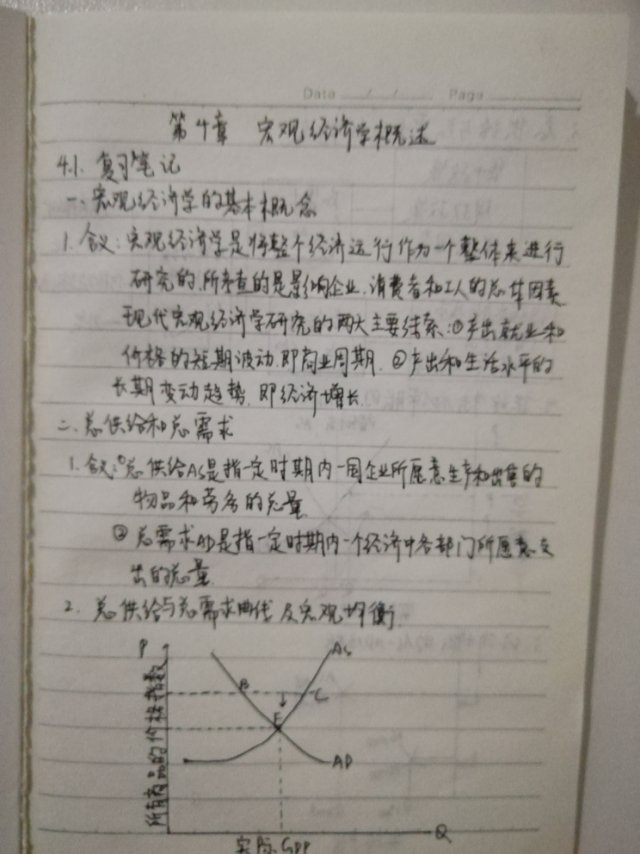 Date / / Page
第4章 宏观经济学概述
4.1. 复习笔记
一、宏观经济学的基本概念
1. 含义:宏观经济学是将整个经济运行作为一个整体来进行
研究的,所考查的是影响企业、消费者和工人的总体因素.
现代宏观经济学研究的两大主要线索:①产出就业和
价格的短期波动,即商业周期. ②产出和生活水平的
长期变动趋势,即经济增长.
二、总供给和总需求
1. 含义:①总供给AS是指一定时期内一国企业所愿意生产和出售的
物品和劳务的总量
②总需求AD是指一定时期内一个经济中各部门所愿意支
出的总量.
2. 总供给与总需求曲线及宏观均衡.
P AS
B C
E
所有商品的价格指数
AD
Q
实际GDP